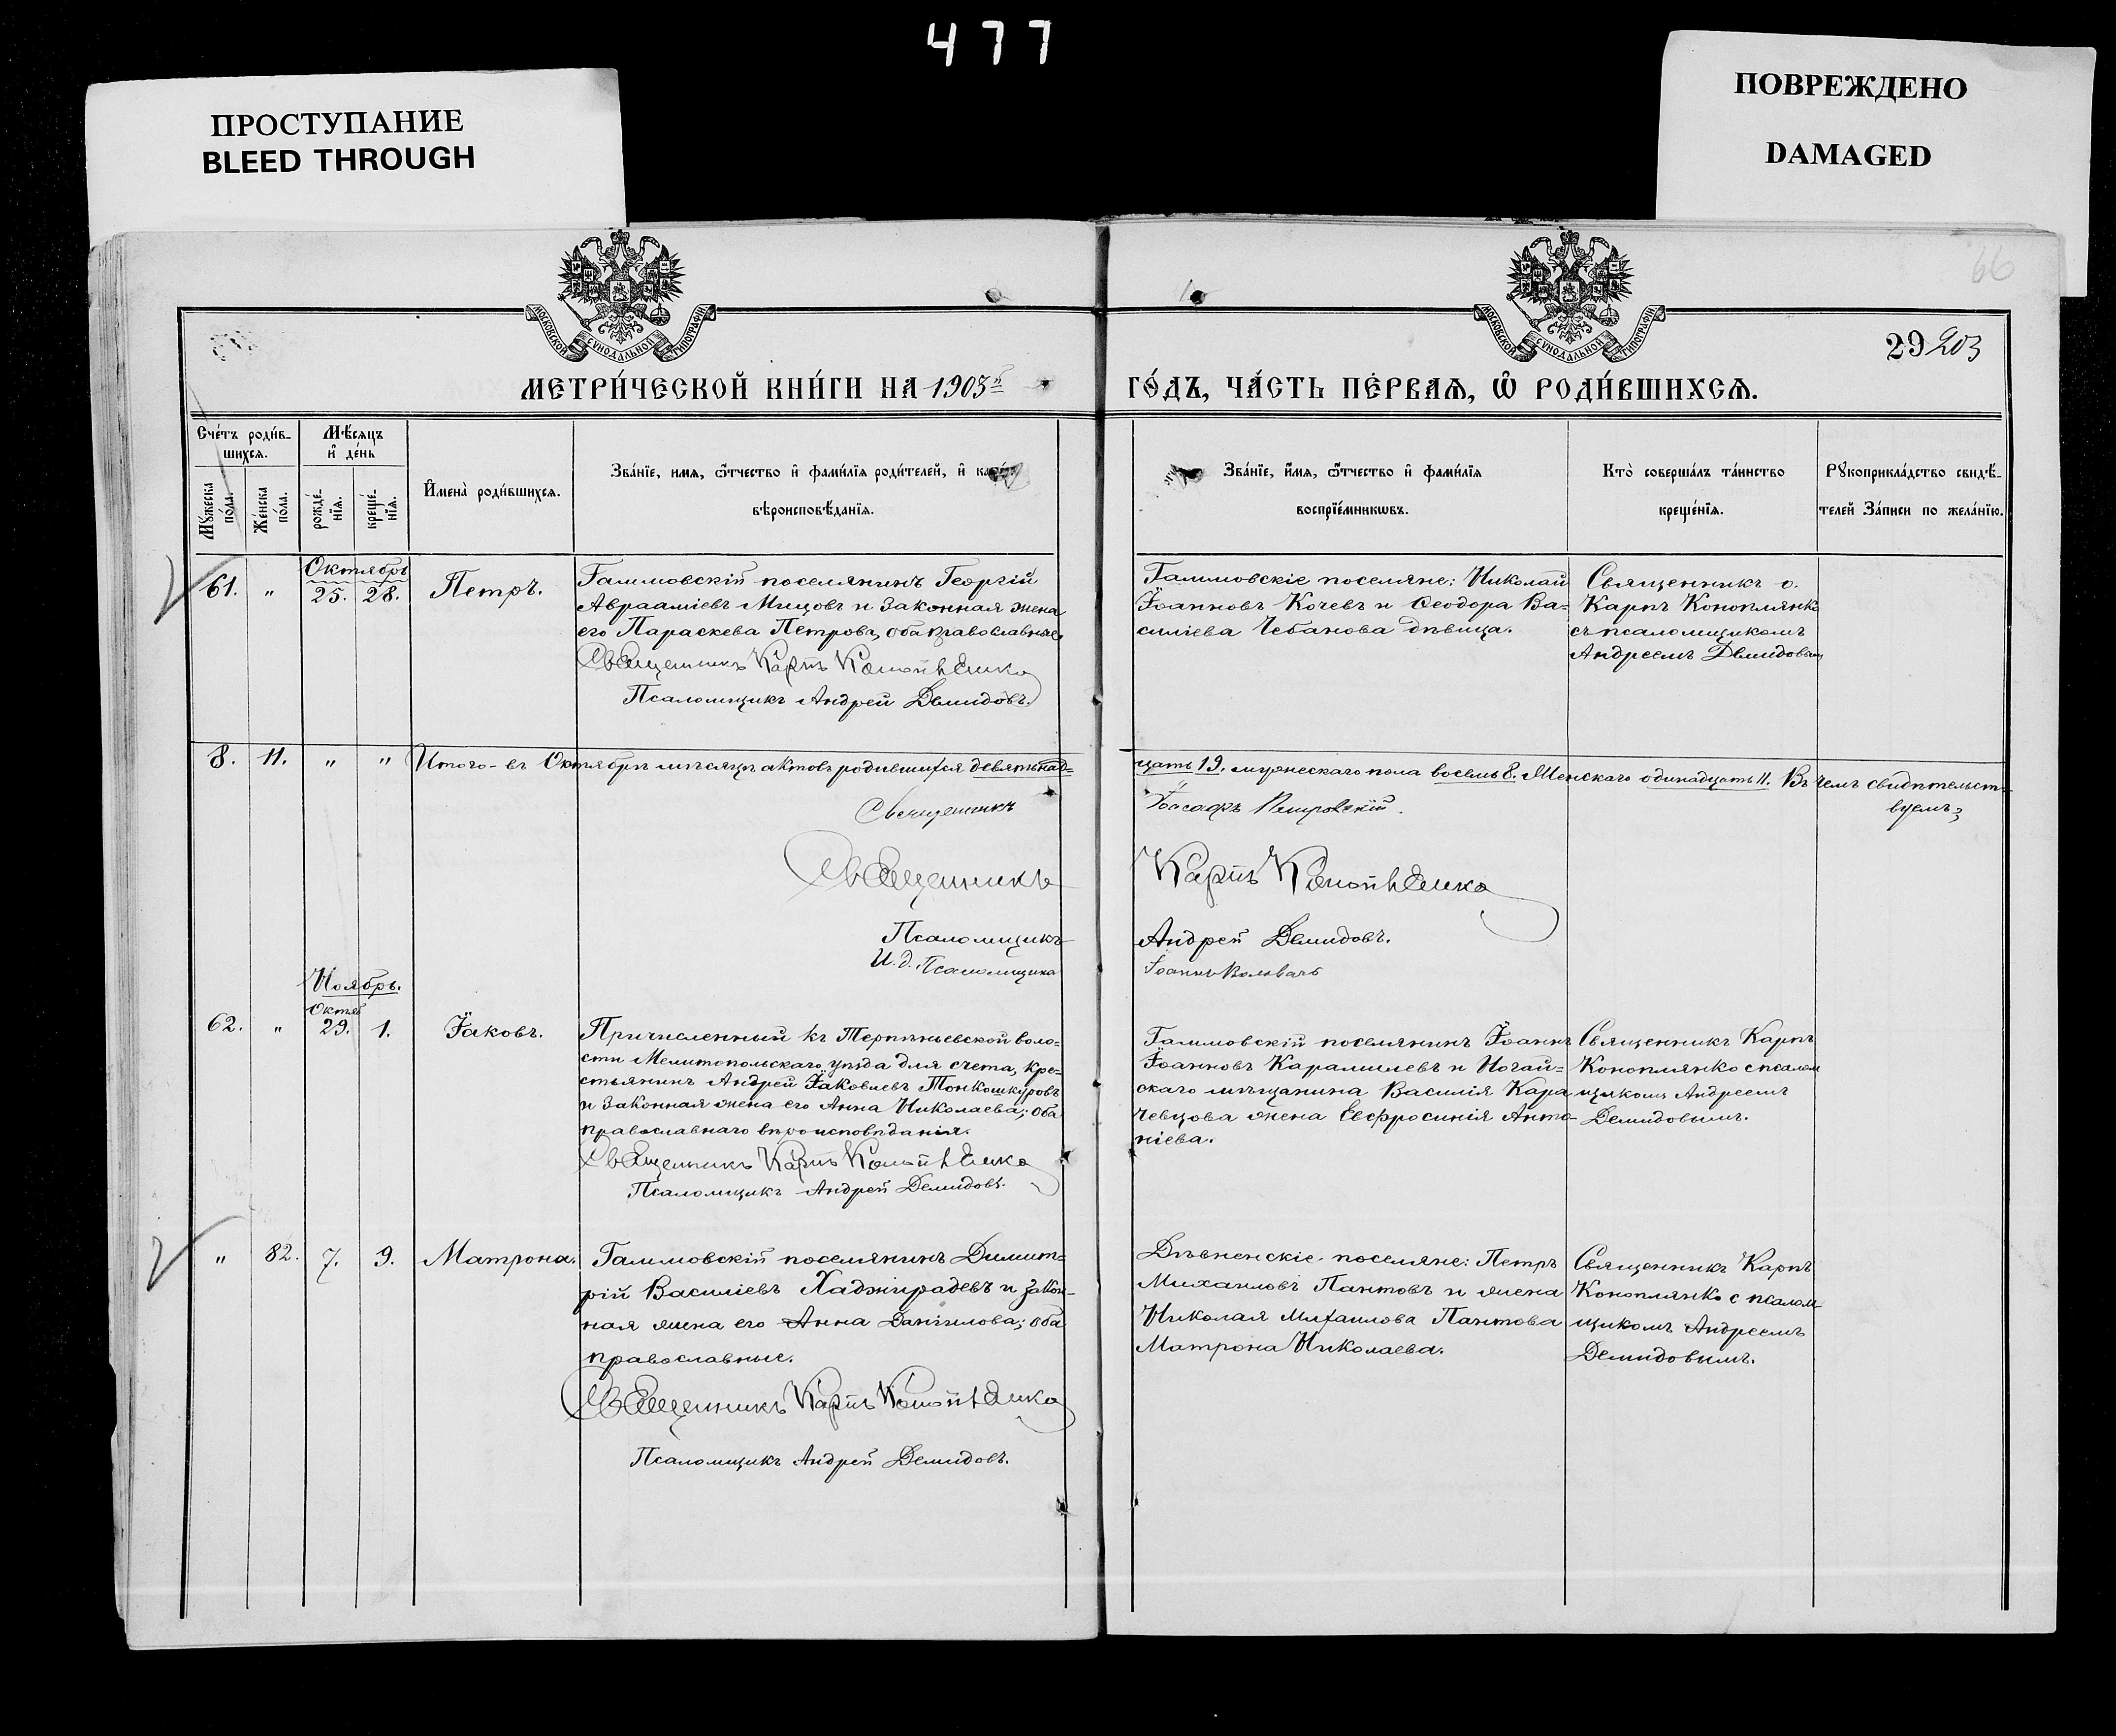 477
ПРОСТУПАНИЕ
BLEED THROUGH
ПОВРЕЖДЕНО
DAMAGED
66
МОСКОВСКОЙ СУНОДАЛЬНОЙ ТИПОГРАФІИ
МОСКОВСКОЙ СУНОДАЛЬНОЙ ТИПОГРАФІИ
29 203
МЕТРИ́ЧЕСКОЙ КНИ́ГИ НА 1903й
ГО́ДЪ, ЧА́СТЬ ПЕ́РВАѦ, Ѡ РОДИ́ВШИХСѦ.
Сче́тъ роди́в-
шихсѧ.
Мѣ́сяцъ
и де́нь
Мꙋ́жеска
по́ла.
Же́нска
по́ла.
рожде́-
нїѧ.
креще́-
нїѧ.
Имена̀ роди́вшихсѧ.
Зва́нїе, имѧ, ѿтчество и фами́лїѧ роди́телей, и
вѣроисповѣ́данїѧ.
Зва́нїе, имѧ, ѿтчество и фами́лїѧ
воспрїе́мникѡвъ.
Кто̀ соверша́лъ та́инство
креще́нїѧ.
Рꙋкоприкла́дство свидѣ́-
телей За́писи по жела́нїю.
Октябрь
61. " 25. 28. Петръ.
Галимовскій поселянинъ Георгій
Авраамиевъ Мицовъ и законная жена
его Параскева Петрова, оба православные.
Священникъ Карпъ Коноплянко
Псаломщикъ Андрей Демидовъ.
Галимовскіе поселяне: Николай
Іоанновъ Кочевъ и Ѳеодора Ва=
силіева Чебанова дѣвица.
Священникъ о.
Карпъ Коноплянко
съ псаломщикомъ
Андреемъ Демидовым
8. 11. " " Итого- въ Октябрѣ мѣсяцѣ актовъ родившихся девятьнад=
цать 19, мужескаго пола восемь 8. Женскаго одинадцать 11. Въ чемъ свидѣтельст=
вуемъ:
Священникъ
Іоасафъ
Священникъ
Карпъ Коноплянко
Псаломщикъ
Андрей Демидовъ.
И. д. Псаломщика
Іоаннъ
Ноябрь.
Октяб
62. " 29. 1. Іаковъ.
Причисленный къ Терпѣньевской воло=
сти Мелитопольскаго уѣзда для счета, кре=
стьянинъ Андрей Іаковлевъ Тонкошкуровъ
и законная жена его Анна Николаева; оба
православнаго вѣроисповѣданія.
Священникъ Карпъ Коноплянко
Псаломщикъ Андрей Демидовъ.
Галимовскій поселянинъ Іоаннъ
Іоанновъ Карамилевъ и Ногай=
скаго мѣщанина Василія Кара
чевцова жена Евфросинія Анто-
ніева.
Священникъ Карпъ
Коноплянко с псалом
щикомъ Андреемъ
Демидовымъ.
" 82. 7. 9. Матрона.
Галимовскій поселянинъ Димит=
рій Василіевъ Хаджирадевъ и закон-
ная жена его Анна Даніилова; оба
православные.
Священникъ Карпъ Коноплянко
Псаломщикъ Андрей Демидовъ.
Дѣвненскіе поселяне: Петръ
Михаиловъ Пантовъ и жена
Николая Михаилова Пантова
Матрона Николаева.
Священникъ Карпъ
Коноплянко с псалом-
щикомъ Андреемъ
Демидовымъ.